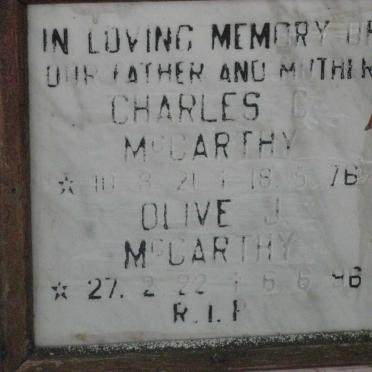 IN LOVING MEMORY OF
OUR FATHER AND MOTHER
CHARLES C.
McCARTHY
☆ 10. 8. 21 † 18. 5. 76
OLIVE J.
McCARTHY
☆ 27. 2. 22 † 6. 6. 96
R.I.P